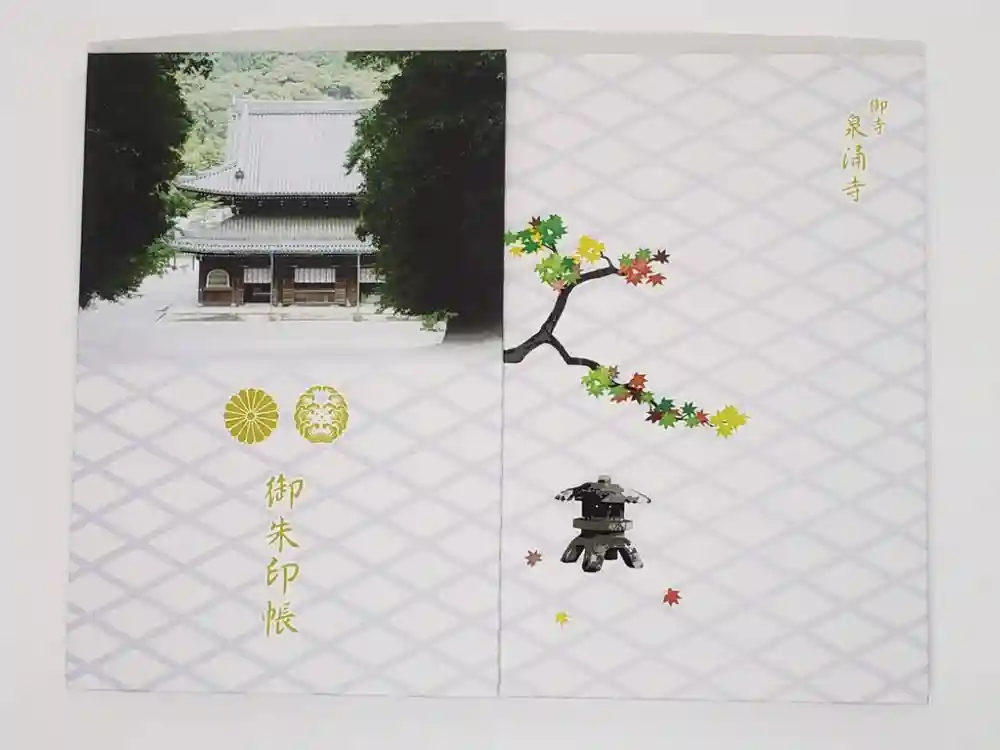 御寺
泉涌寺
御朱印帳